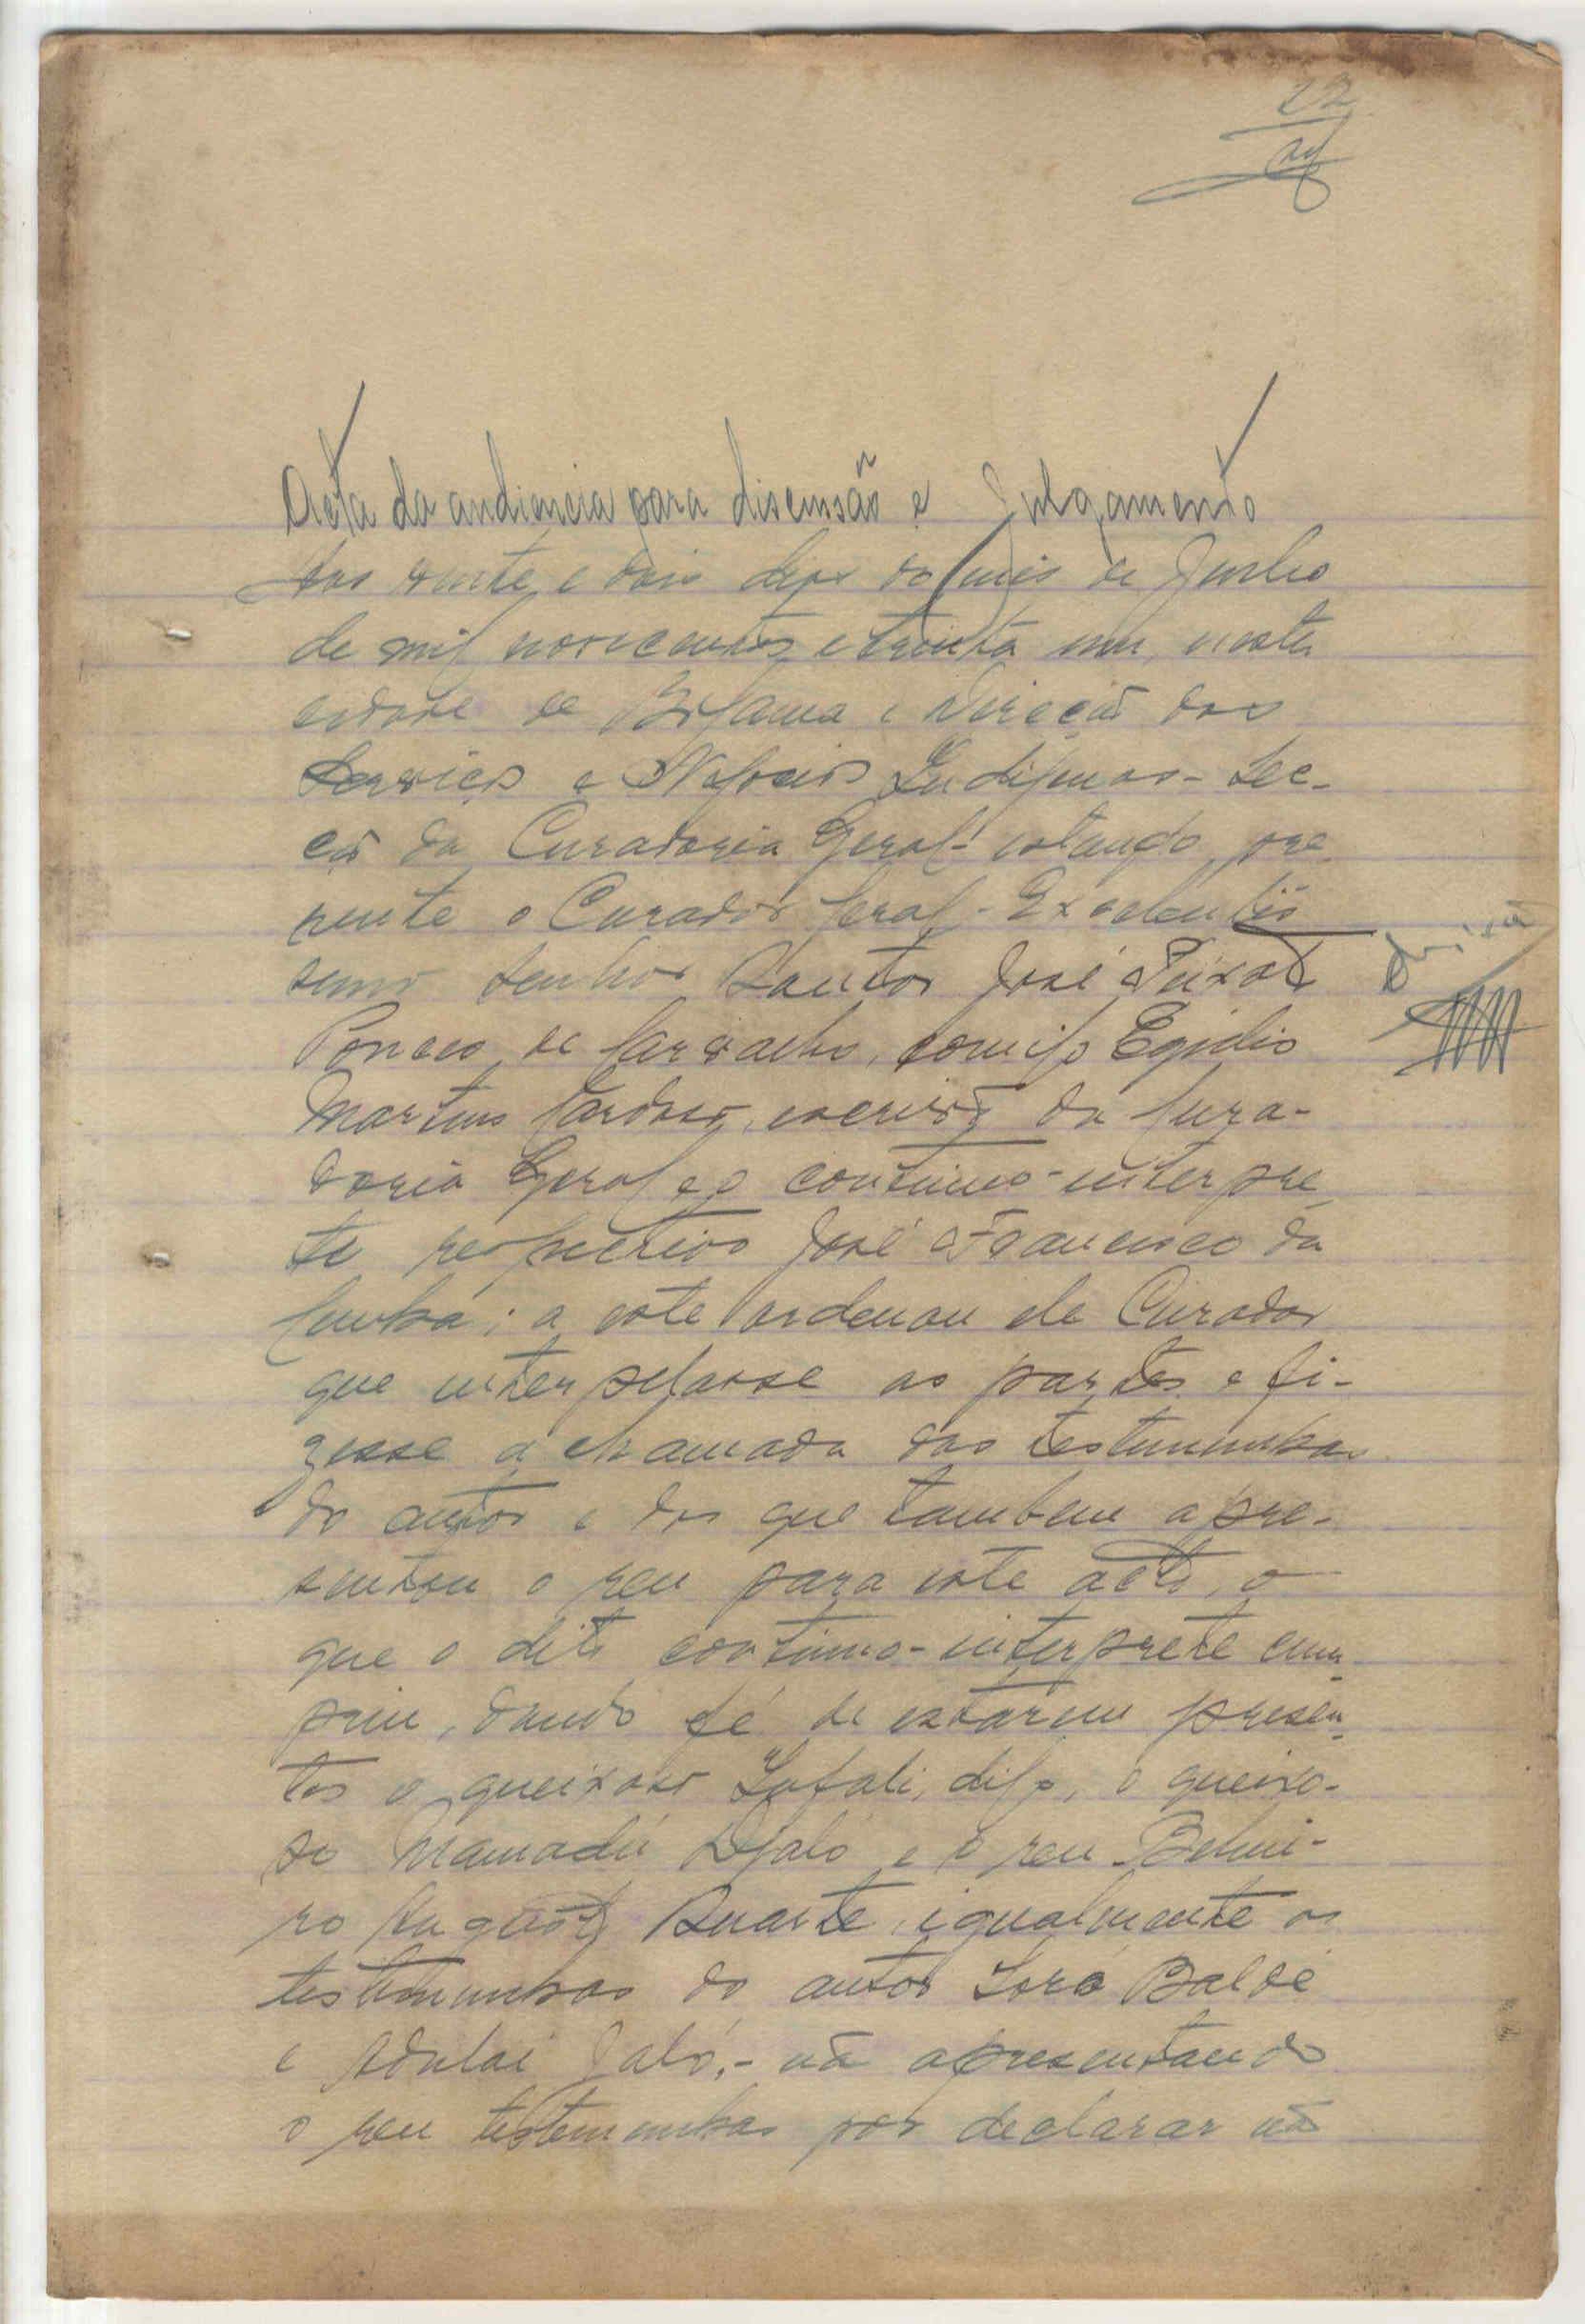 22
Acta da audiencia para discussão e Julgamento
Aos vinte e dois dias do mês de Junho
de mil novecentos e trinta um, nesta
cidade de Bolama e Direcção dos
Serviços e Negocios Indigenas - Sec-
ção da Curadoria Geral - estando pre
sente o Curador Geral - Excelentis
simo Senhor Doutor José Peixoto
Ponces de Carvalho, comigo Egidio
Martins Cardoso, escrivão da Cura-
doria Geral e o continuo-interpre
te respectivo José Francisco da
Cunha; a este ordenou ele Curador
que interpelasse as partes e fi-
zesse a chamada das testemunhas
do autor e das que tambem apre-
sentou o reu para este acto, o
que o dito continuo-interprete cum
priu, dando fé de estarem presen
tes o queixoso digo, o queixo-
so Mamadú Djaló e o reu Belmi-
ro Augusto Duarte, igualmente as
testemunhas do autor Soró Baldé
e Adulai Jaló, - não apresentando
o reu testemunhas por declarar não